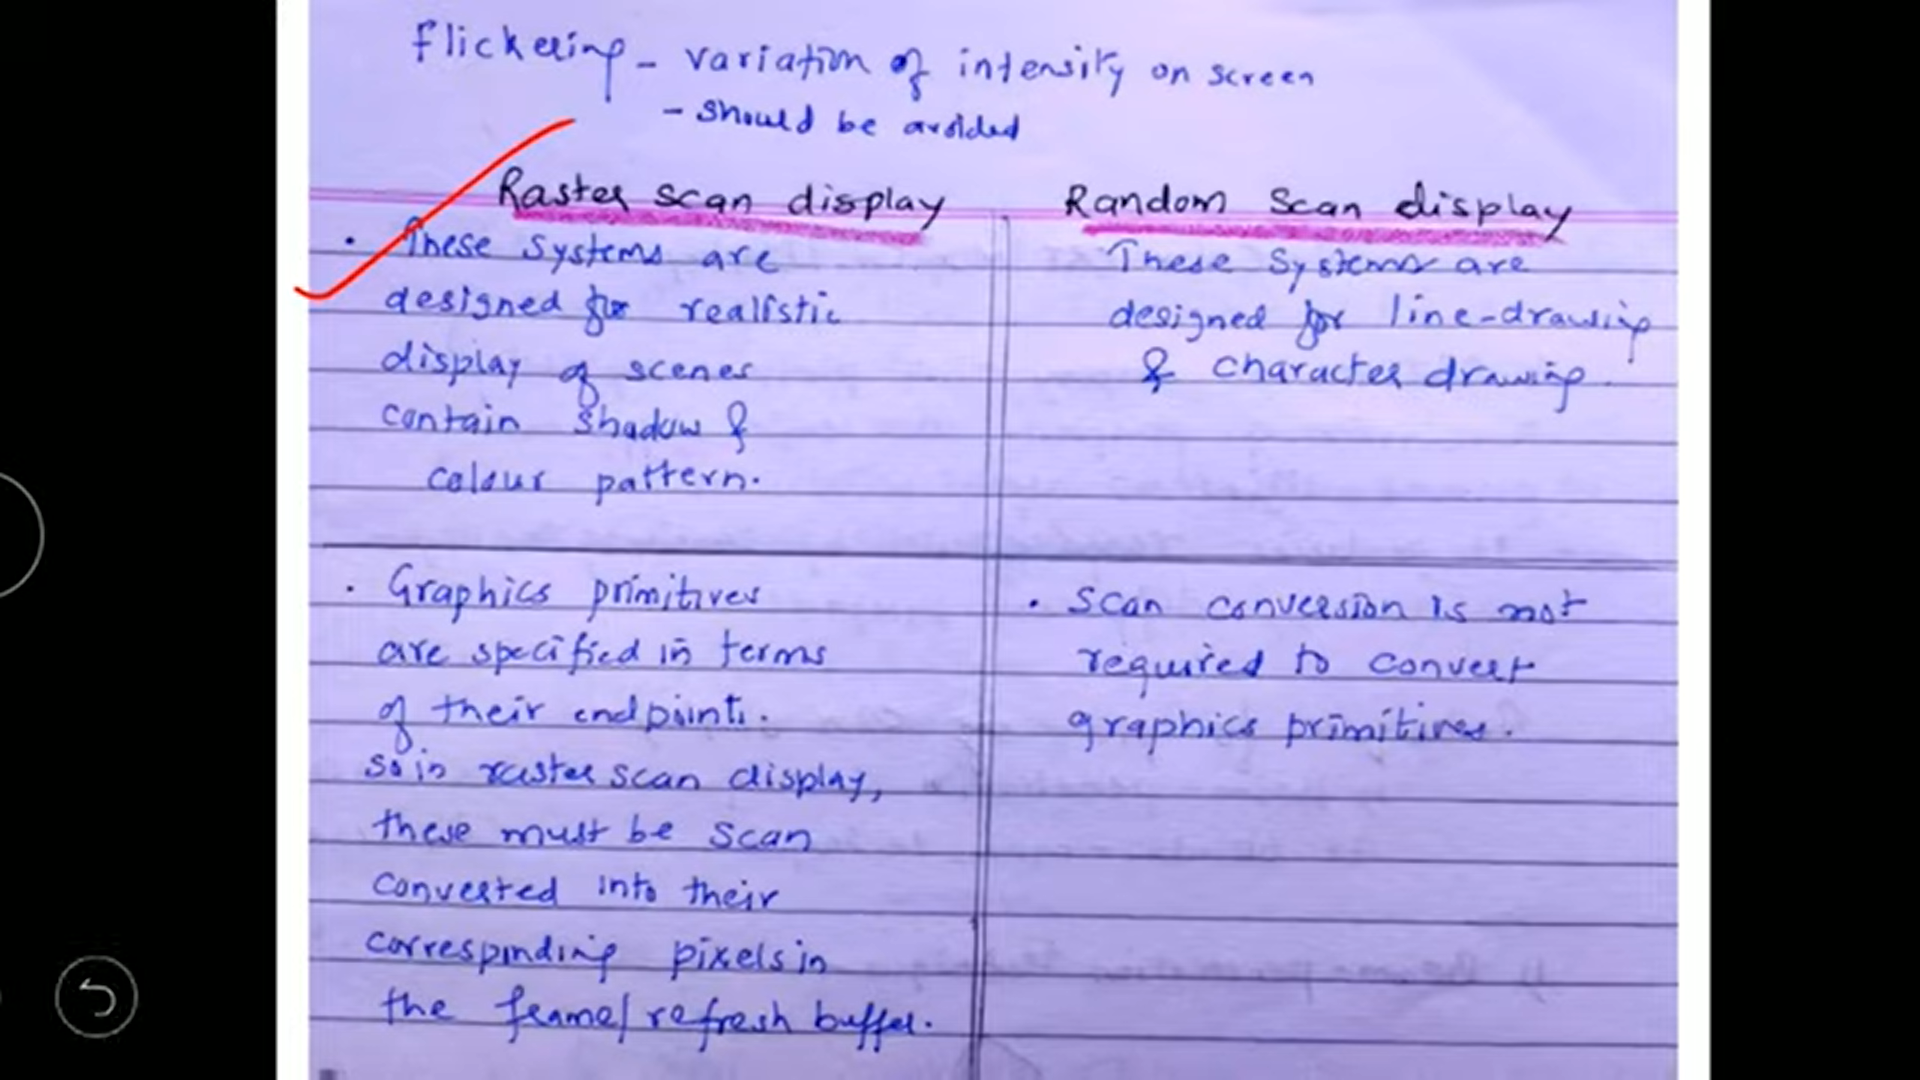 flickering - variation of intensity on screen
- should be avoided
Raster scan display
• These systems are
designed for realistic
display of scenes
contain shadow &
colour pattern.
Random Scan display
These Systems are
designed for line-drawing
& character drawing.
• Graphics primitives
are specified in terms
of their endpoints.
So in raster scan display,
these must be scan
converted into their
corresponding pixels in
the frame/refresh buffer.
• Scan conversion is not
required to convert
graphics primitives.